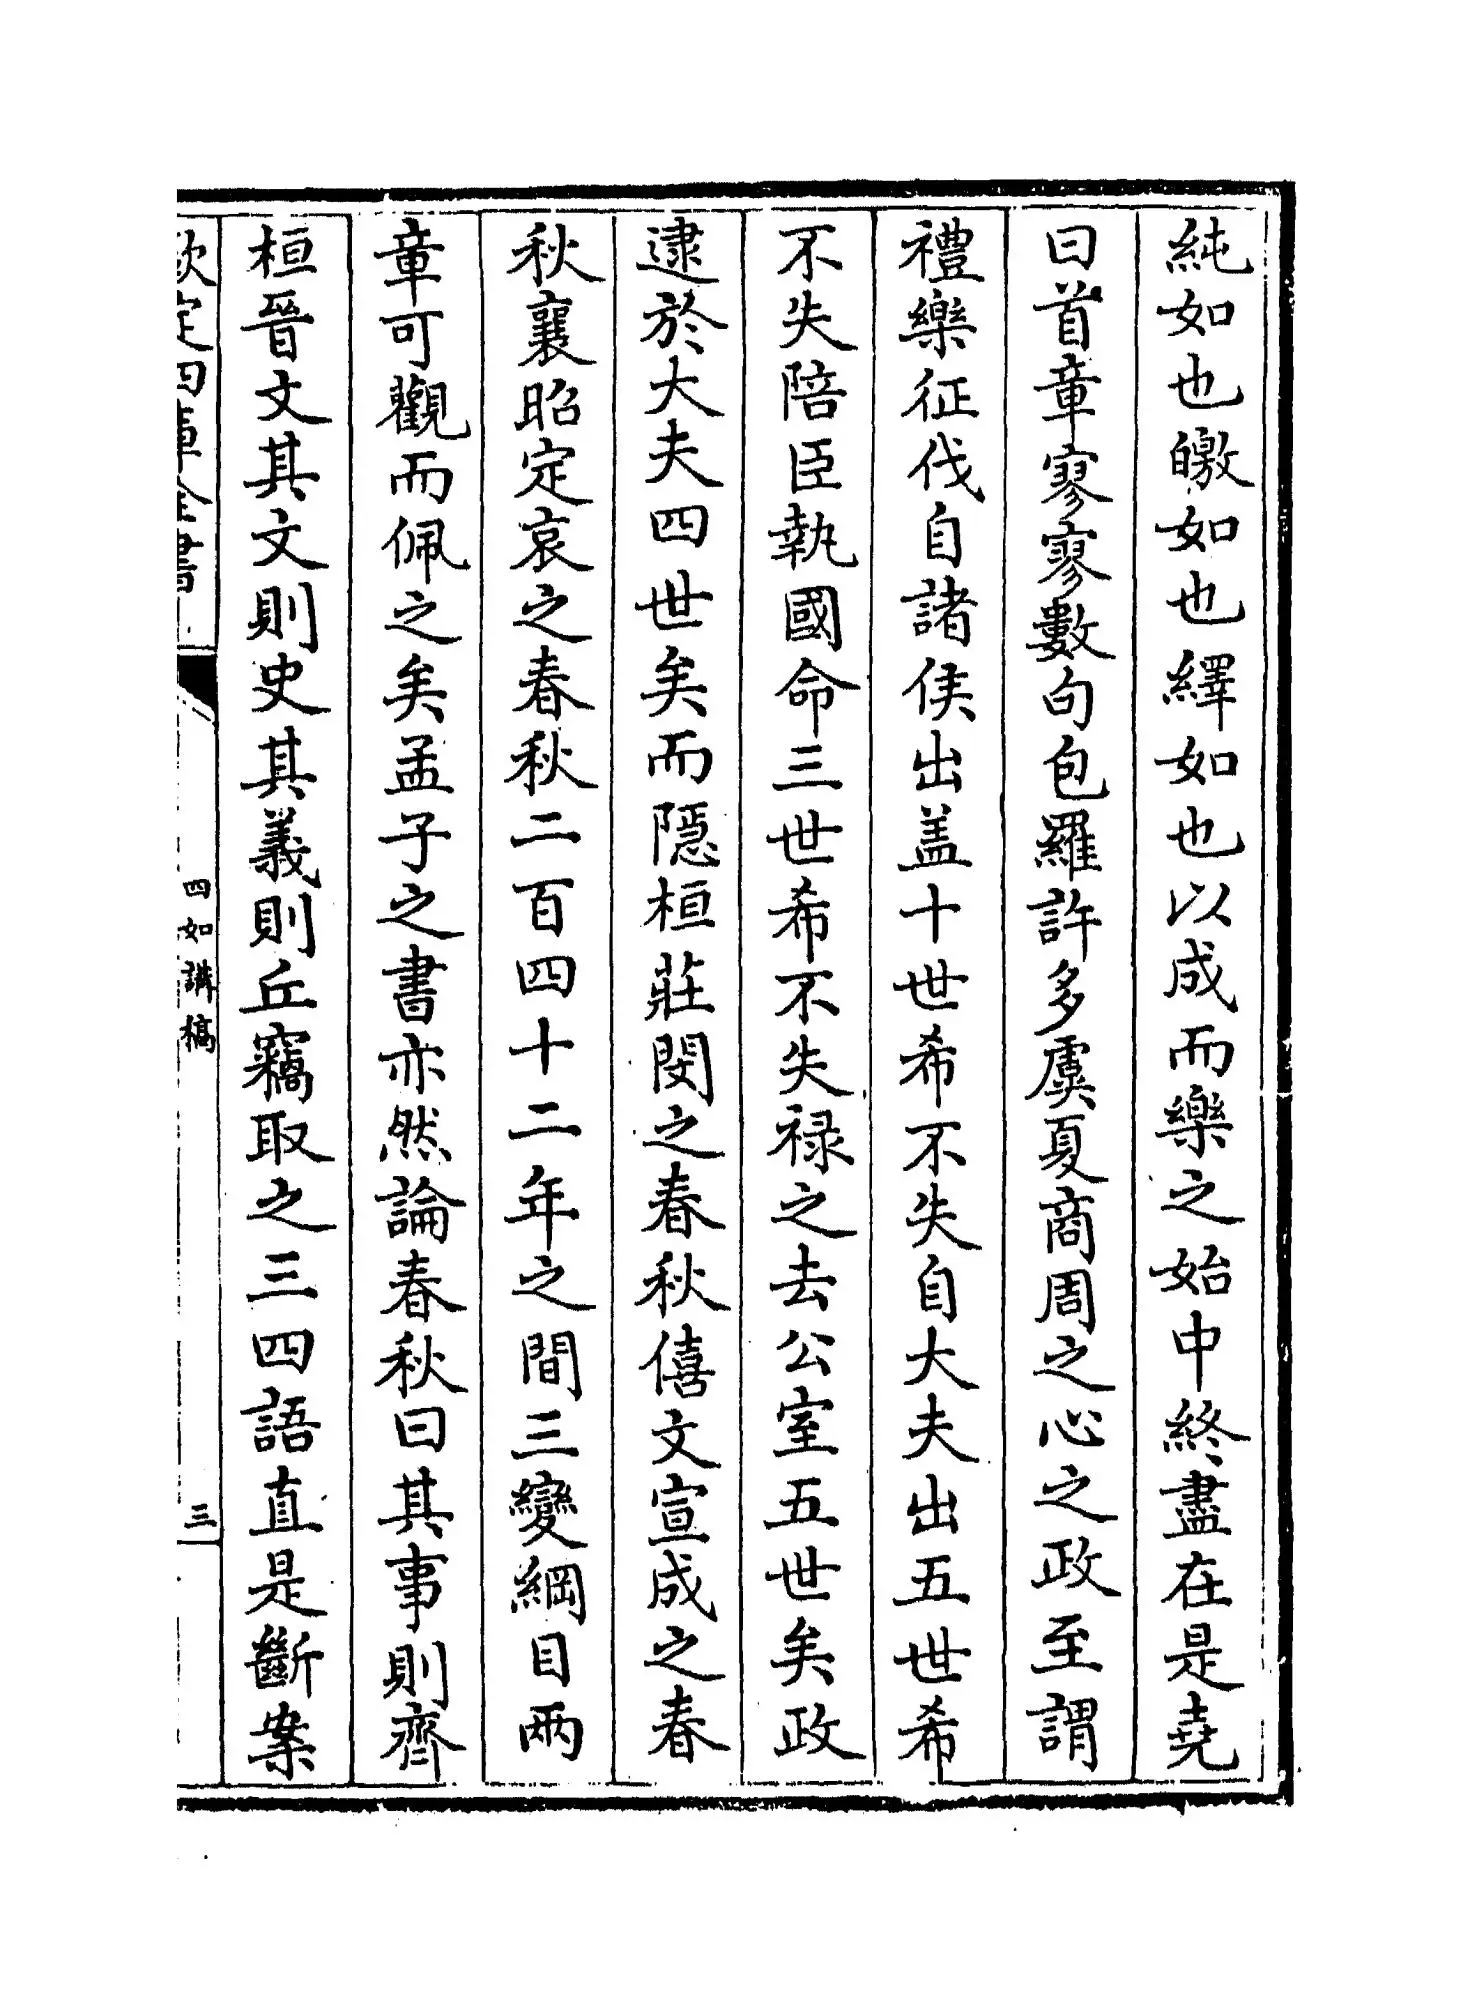 純如也皦如也繹如也以成而樂之始中終盡在是堯
曰首章寥寥數句包羅許多虞夏商周之心之政至謂
禮樂征伐自諸侯出盖十世希不失自大夫出五世希
不失陪臣執國命三世希不失禄之去公室五世矣政
逮於大夫四世矣而隱桓莊閔之春秋僖文宣成之春
秋襄昭定哀之春秋二百四十二年之間三變綱目兩
章可觀而佩之矣孟子之書亦然論春秋曰其事則齊
桓晉文其文則史其義則丘竊取之三四語直是斷案
欽定四庫全書
四如講稿
三